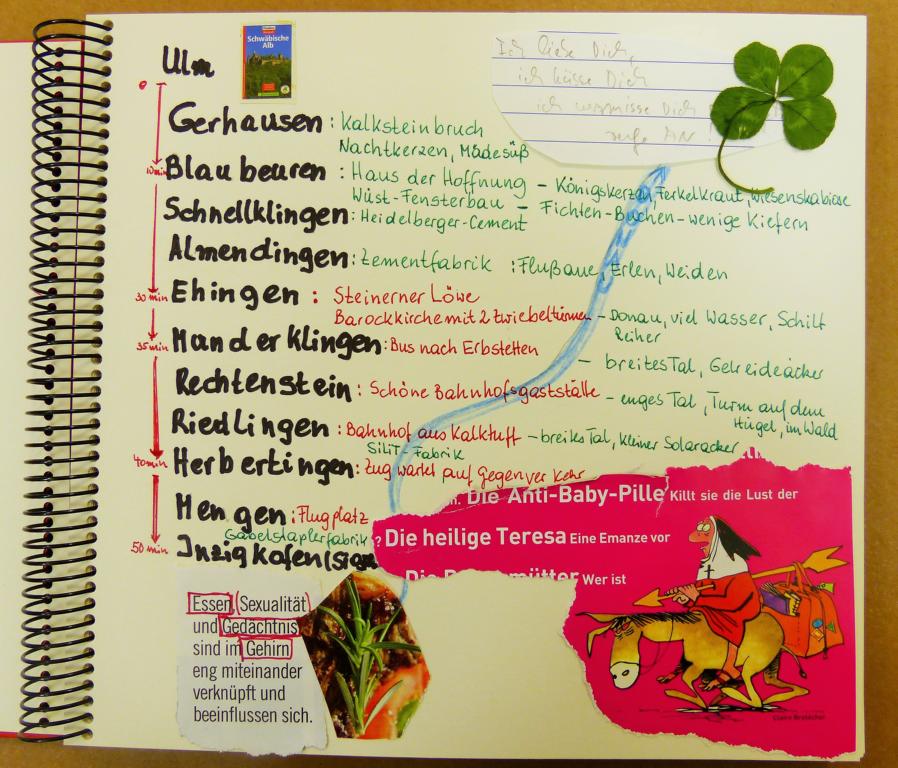 Ulm
Schwäbische Alb
Ich liebe Dich,
ich küsse Dich
ich vermisse Dich
rufe AN!
0
Gerhausen: Kalksteinbruch
Nachtkerzen, Mädesüß
10min Blaubeuren: Haus der Hoffnung – Königskerzen, Ferkelkraut, Wiesenskabiose
Wüst-Fensterbau – Fichten-Buchen-wenige Kiefern
Schnellklingen: Heidelberger-Cement
Almendingen: Zementfabrik : Flußaue, Erlen, Weiden
30 min Ehingen: Steinerner Löwe
Barockkirche mit 2 Zwiebeltürmen – Donau, viel Wasser, Schilf
Reiher
35min Munderklingen: Bus nach Erbstetten
– breites Tal, Getreideäcker
Rechtenstein: Schöne Bahnhofsgaststätte – enges Tal, Turm auf dem
Hügel, im Wald
Riedlingen: Bahnhof aus Kalktuff – breites Tal, kleiner Solaracker
SiliT Fabrik
40min Herbertingen: Zug wartet auf Gegenverkehr
Mengen: Flugplatz
Gabelstaplerfabrik
50 min Inzigkofen (Sigm
Die Anti-Baby-Pille Killt sie die Lust der
? Die heilige Teresa Eine Emanze vor
Die mütter Wer ist
Claire Bretécher
Essen, Sexualität
und Gedächtnis
sind im Gehirn
eng miteinander
verknüpft und
beeinflussen sich.